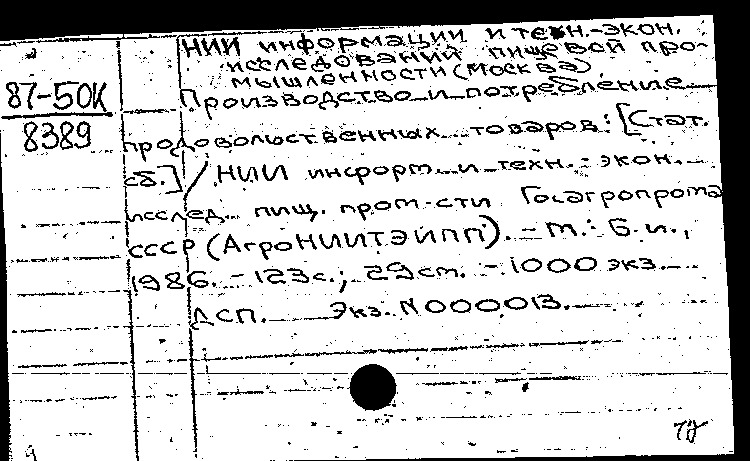 НИИ информации и техн.-экон.
исследований пищевой про-
мышленности (Москва)
87-50К
8389
Производство и потребление
продовольственных товаров: [Стат.
сб.] / НИИ информ. и техн.-экон.
исслед. пищ. пром-сти Госагропрома
СССР (АгроНИИТЭИПП). - М.: Б.и.,
1986. - 123с.; 29см. - 1000 экз.
ДСП. Экз. N000013.